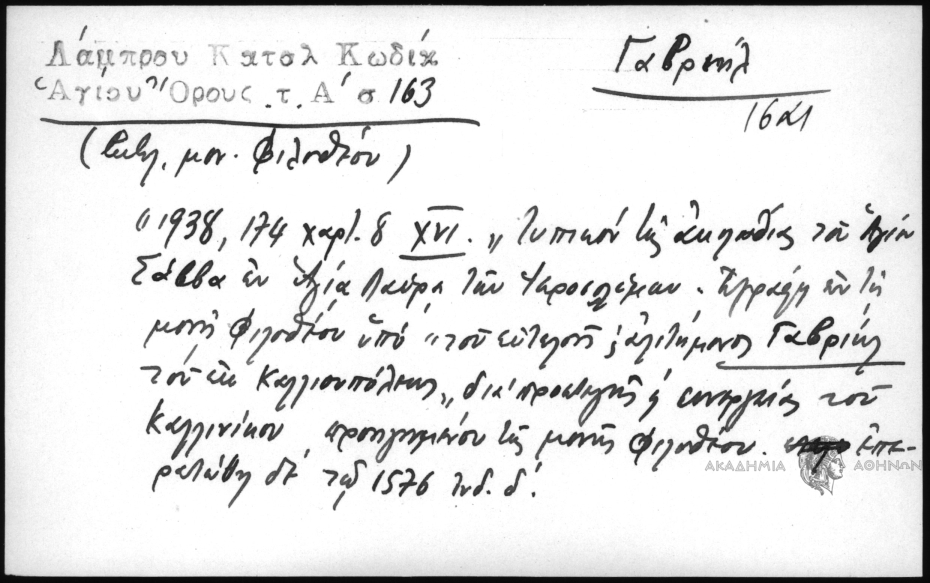 Λάμπρου Κατσλ Κωδίκ
Ἁγίου Ὄρους . τ. Α΄ σ 163
Γαβριήλ
1621
(Βιβλ. μον. Φιλοθέου)
"1938, 174 χαρτ. 8 XVI. „ Τυπικόν τῆς ἀκολουθίας τοῦ Ἁγίου
Σάββα ἐν Ἁγίᾳ Λαύρᾳ τῶν Ἱεροσολύμων. Ἐγράφη ἐν τῇ
μονῇ Φιλοθέου ὑπό "τοῦ εὐτελοῦς ἀλιτήμονος Γαβριήλ
τοῦ ἐκ Καλλιουπόλεως„ διά προσταγῆς ἡ συνεργείας τοῦ
Καλλινίκου προηγουμένου τῆς μονῆς Φιλοθέου. ἐπε-
ρατώθη δέ τῷ 1576 ἰνδ. δ΄.
ΑΚΑΔΗΜΙΑ ΑΘΗΝΩΝ